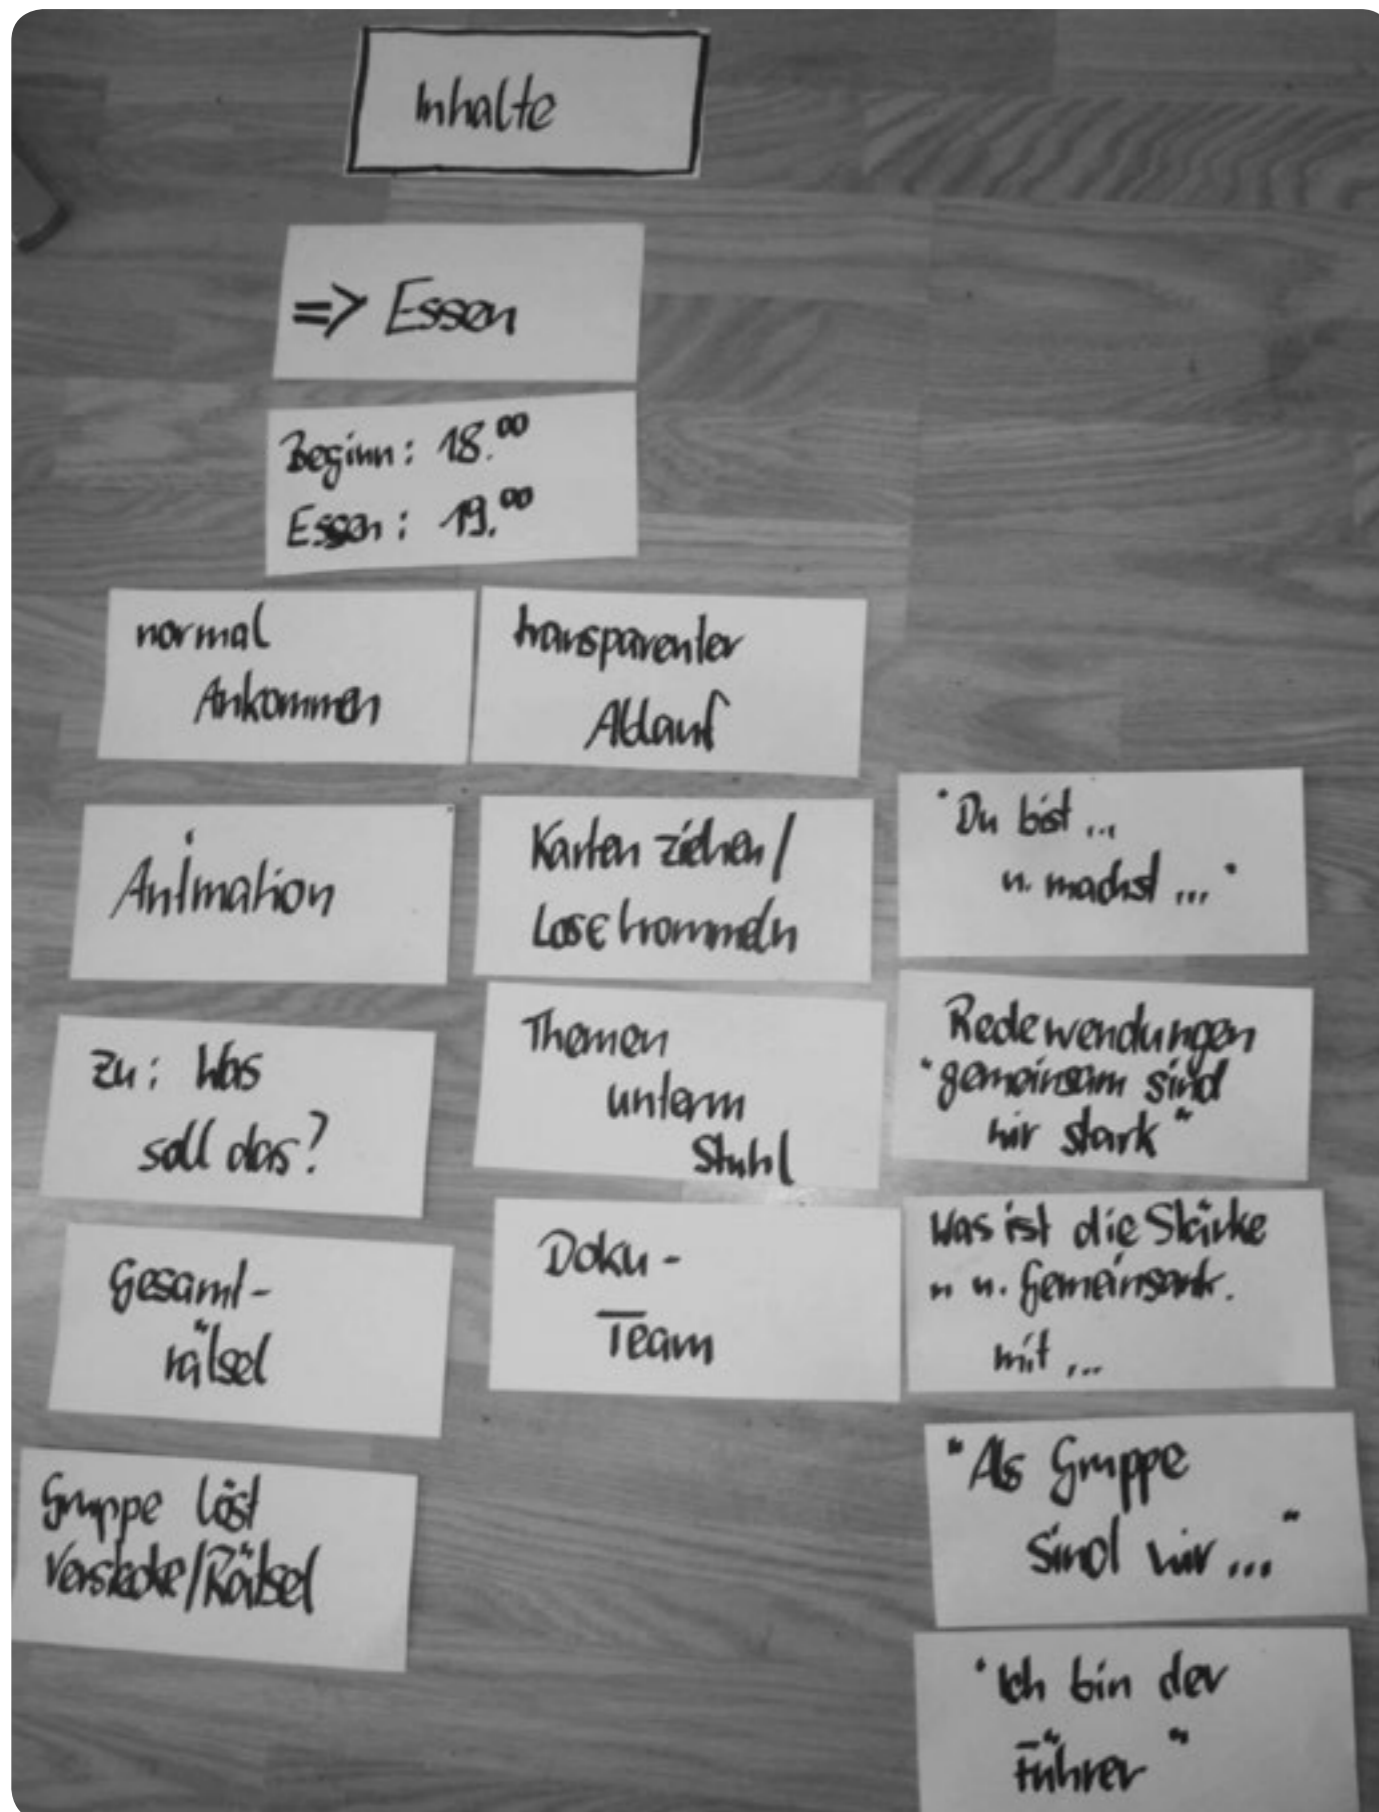 Inhalte
=> Essen
Beginn: 18.00
Essen: 19.00
normal
Ankommen
transparenter
Ablauf
Animation
Karten ziehen/
Lose trommeln
"Du bist ...
u. machst ..."
Zu: Was
soll das?
Themen
unterm
Stuhl
Redewendungen
"gemeinsam sind
wir stark"
Gesamt-
rätsel
Doku-
Team
Was ist die Stärke
" u. Gemeinsamk.
mit ...
Gruppe löst
Verstecke/Rätsel
"Als Gruppe
sind wir ..."
"Ich bin der
Führer"